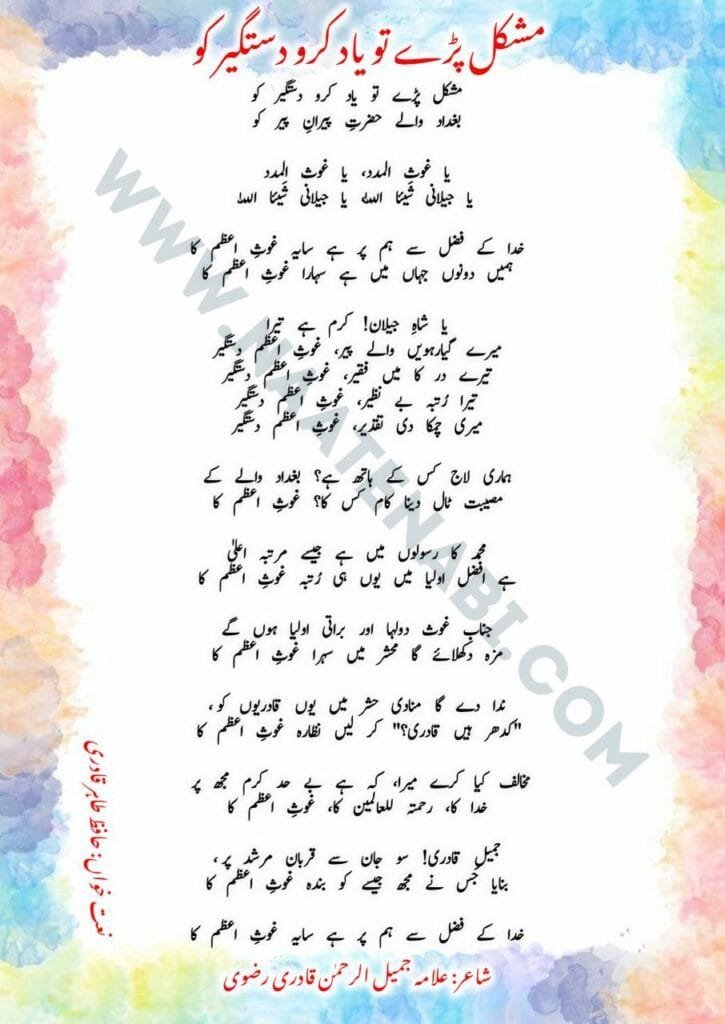 مشکل پڑے تو یاد کرو دستگیر کو
مشکل پڑے تو یاد کرو دستگیر کو
بغداد والے حضرتِ پیرانِ پیر کو
یا غوث المدد، یا غوث المدد
یا جیلانی شَیئًا اللہ یا جیلانی شَیئًا اللہ
خدا کے فضل سے ہم پر ہے سایہ غوثِ اعظم کا
ہمیں دونوں جہاں میں ہے سہارا غوثِ اعظم کا
یا شاہِ جیلان! کرم ہے تیرا
میرے گیارہویں والے پیر، غوثِ اعظم دستگیر
تیرے در کا میں فقیر، غوثِ اعظم دستگیر
تیرا رُتبہ بے نظیر، غوثِ اعظم دستگیر
میری چمکا دی تقدیر، غوثِ اعظم دستگیر
ہماری لاج کس کے ہاتھ ہے؟ بغداد والے کے
مصیبت ٹال دینا کام کس کا؟ غوثِ اعظم کا
محمد کا رسولوں میں ہے جیسے مرتبہ اعلیٰ
ہے افضل اولیا میں یوں ہی رُتبہ غوثِ اعظم کا
جنابِ غوث دولہا اور براتی اولیا ہوں گے
مزہ دکھلائے گا محشر میں سہرا غوثِ اعظم کا
ندا دے گا منادی حشر میں یوں قادریوں کو،
"کدھر ہیں قادری؟" کر لیں نظارہ غوثِ اعظم کا
مخالف کیا کرے میرا، کہ ہے بے حد کرم مجھ پر
خدا کا، رحمتہ للعالمین کا، غوثِ اعظم کا
جمیل قادری! سو جان سے قربان مرشد پر،
بنایا جس نے مجھ جیسے کو بندہ غوثِ اعظم کا
خدا کے فضل سے ہم پر ہے سایہ غوثِ اعظم کا
شاعر: علامہ جمیل الرحمٰن قادری رضوی
نعت خواں: حافظ طاہر قادری
WWW.NAATENABI.COM